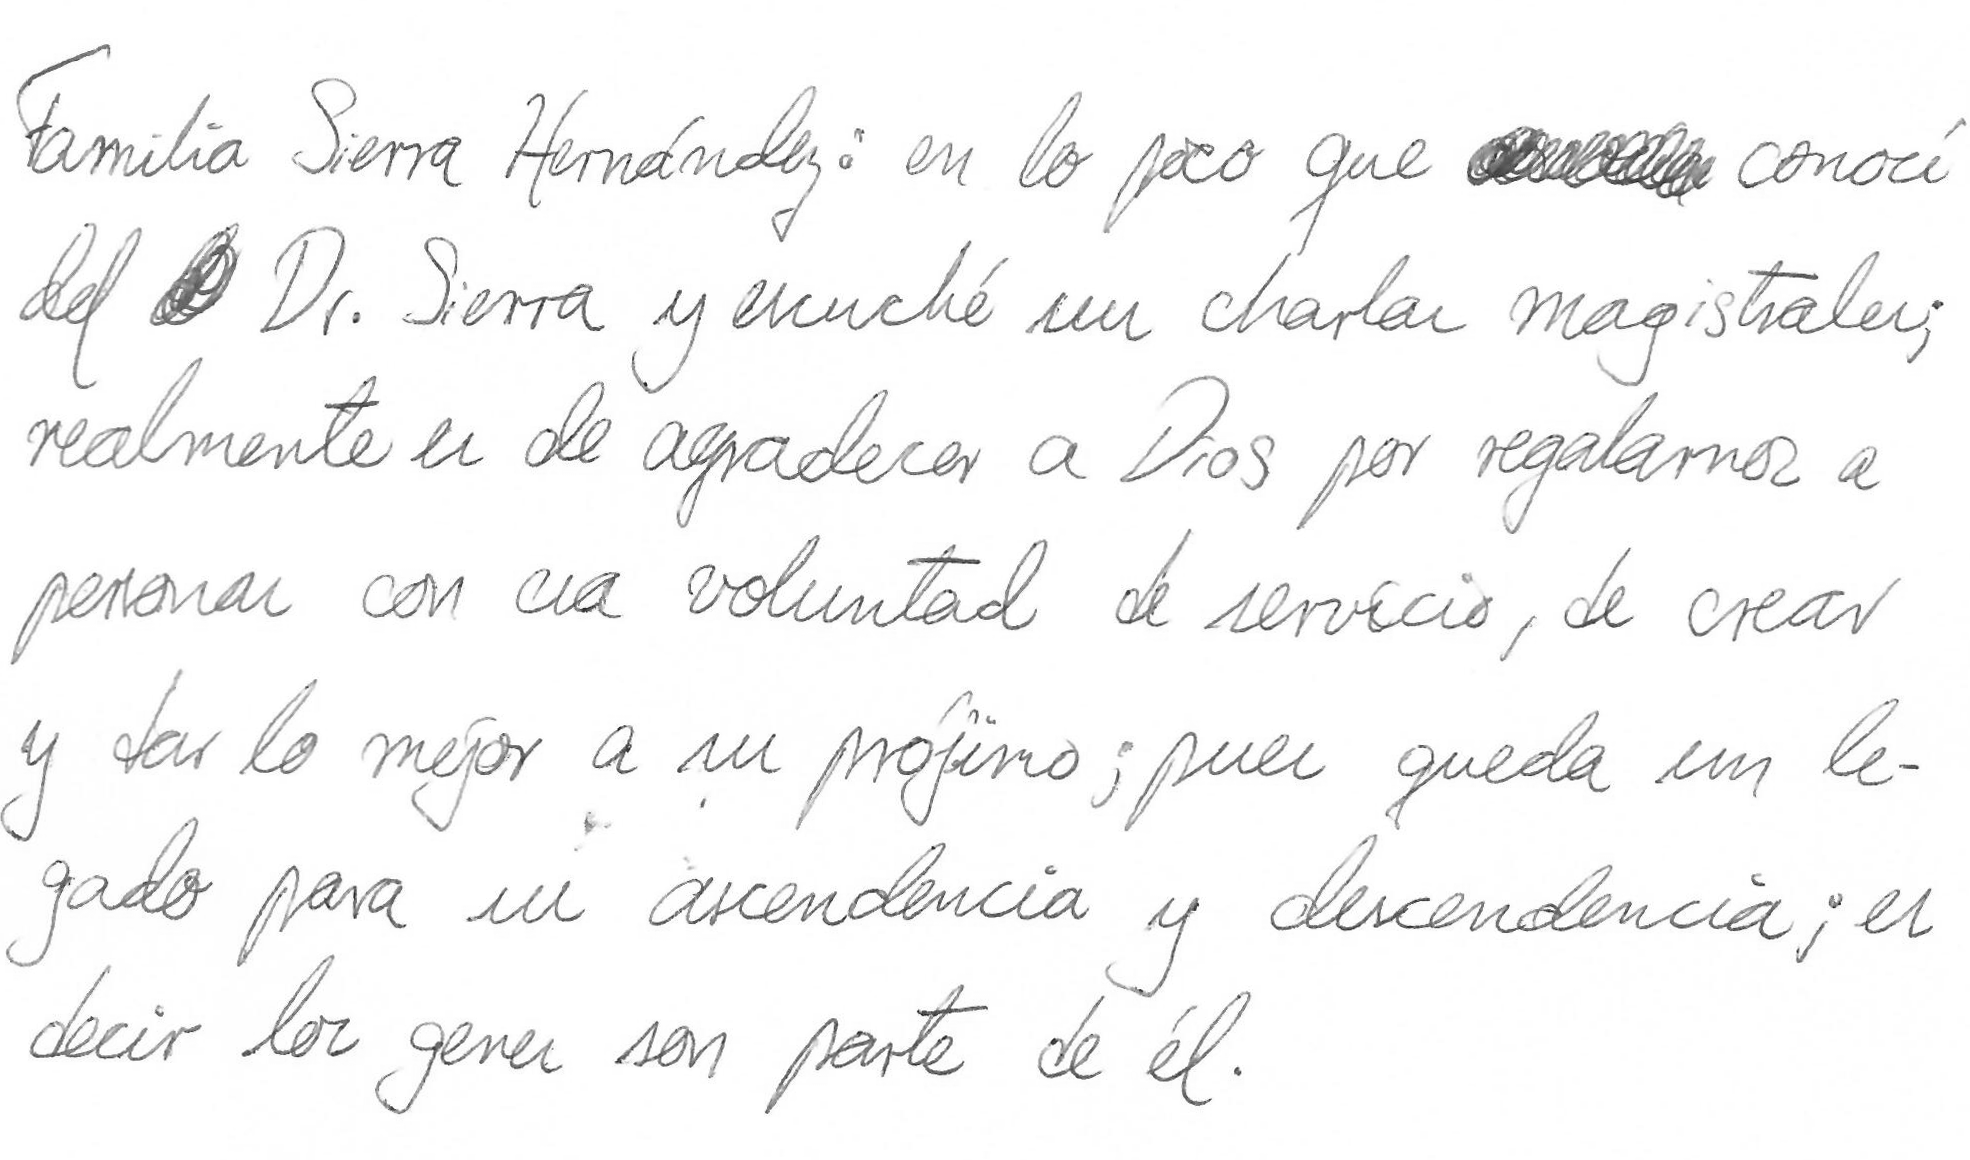 Familia Sierra Hernández: en lo poco que conocí
del Dr. Sierra y escuché sus charlas magistrales;
realmente es de agradecer a Dios por regalarnos a
personas con esa voluntad de servicio, de crear
y dar lo mejor a su prójimo; pues queda un le-
gado para su ascendencia y descendencia; es
decir los genes son parte de él.